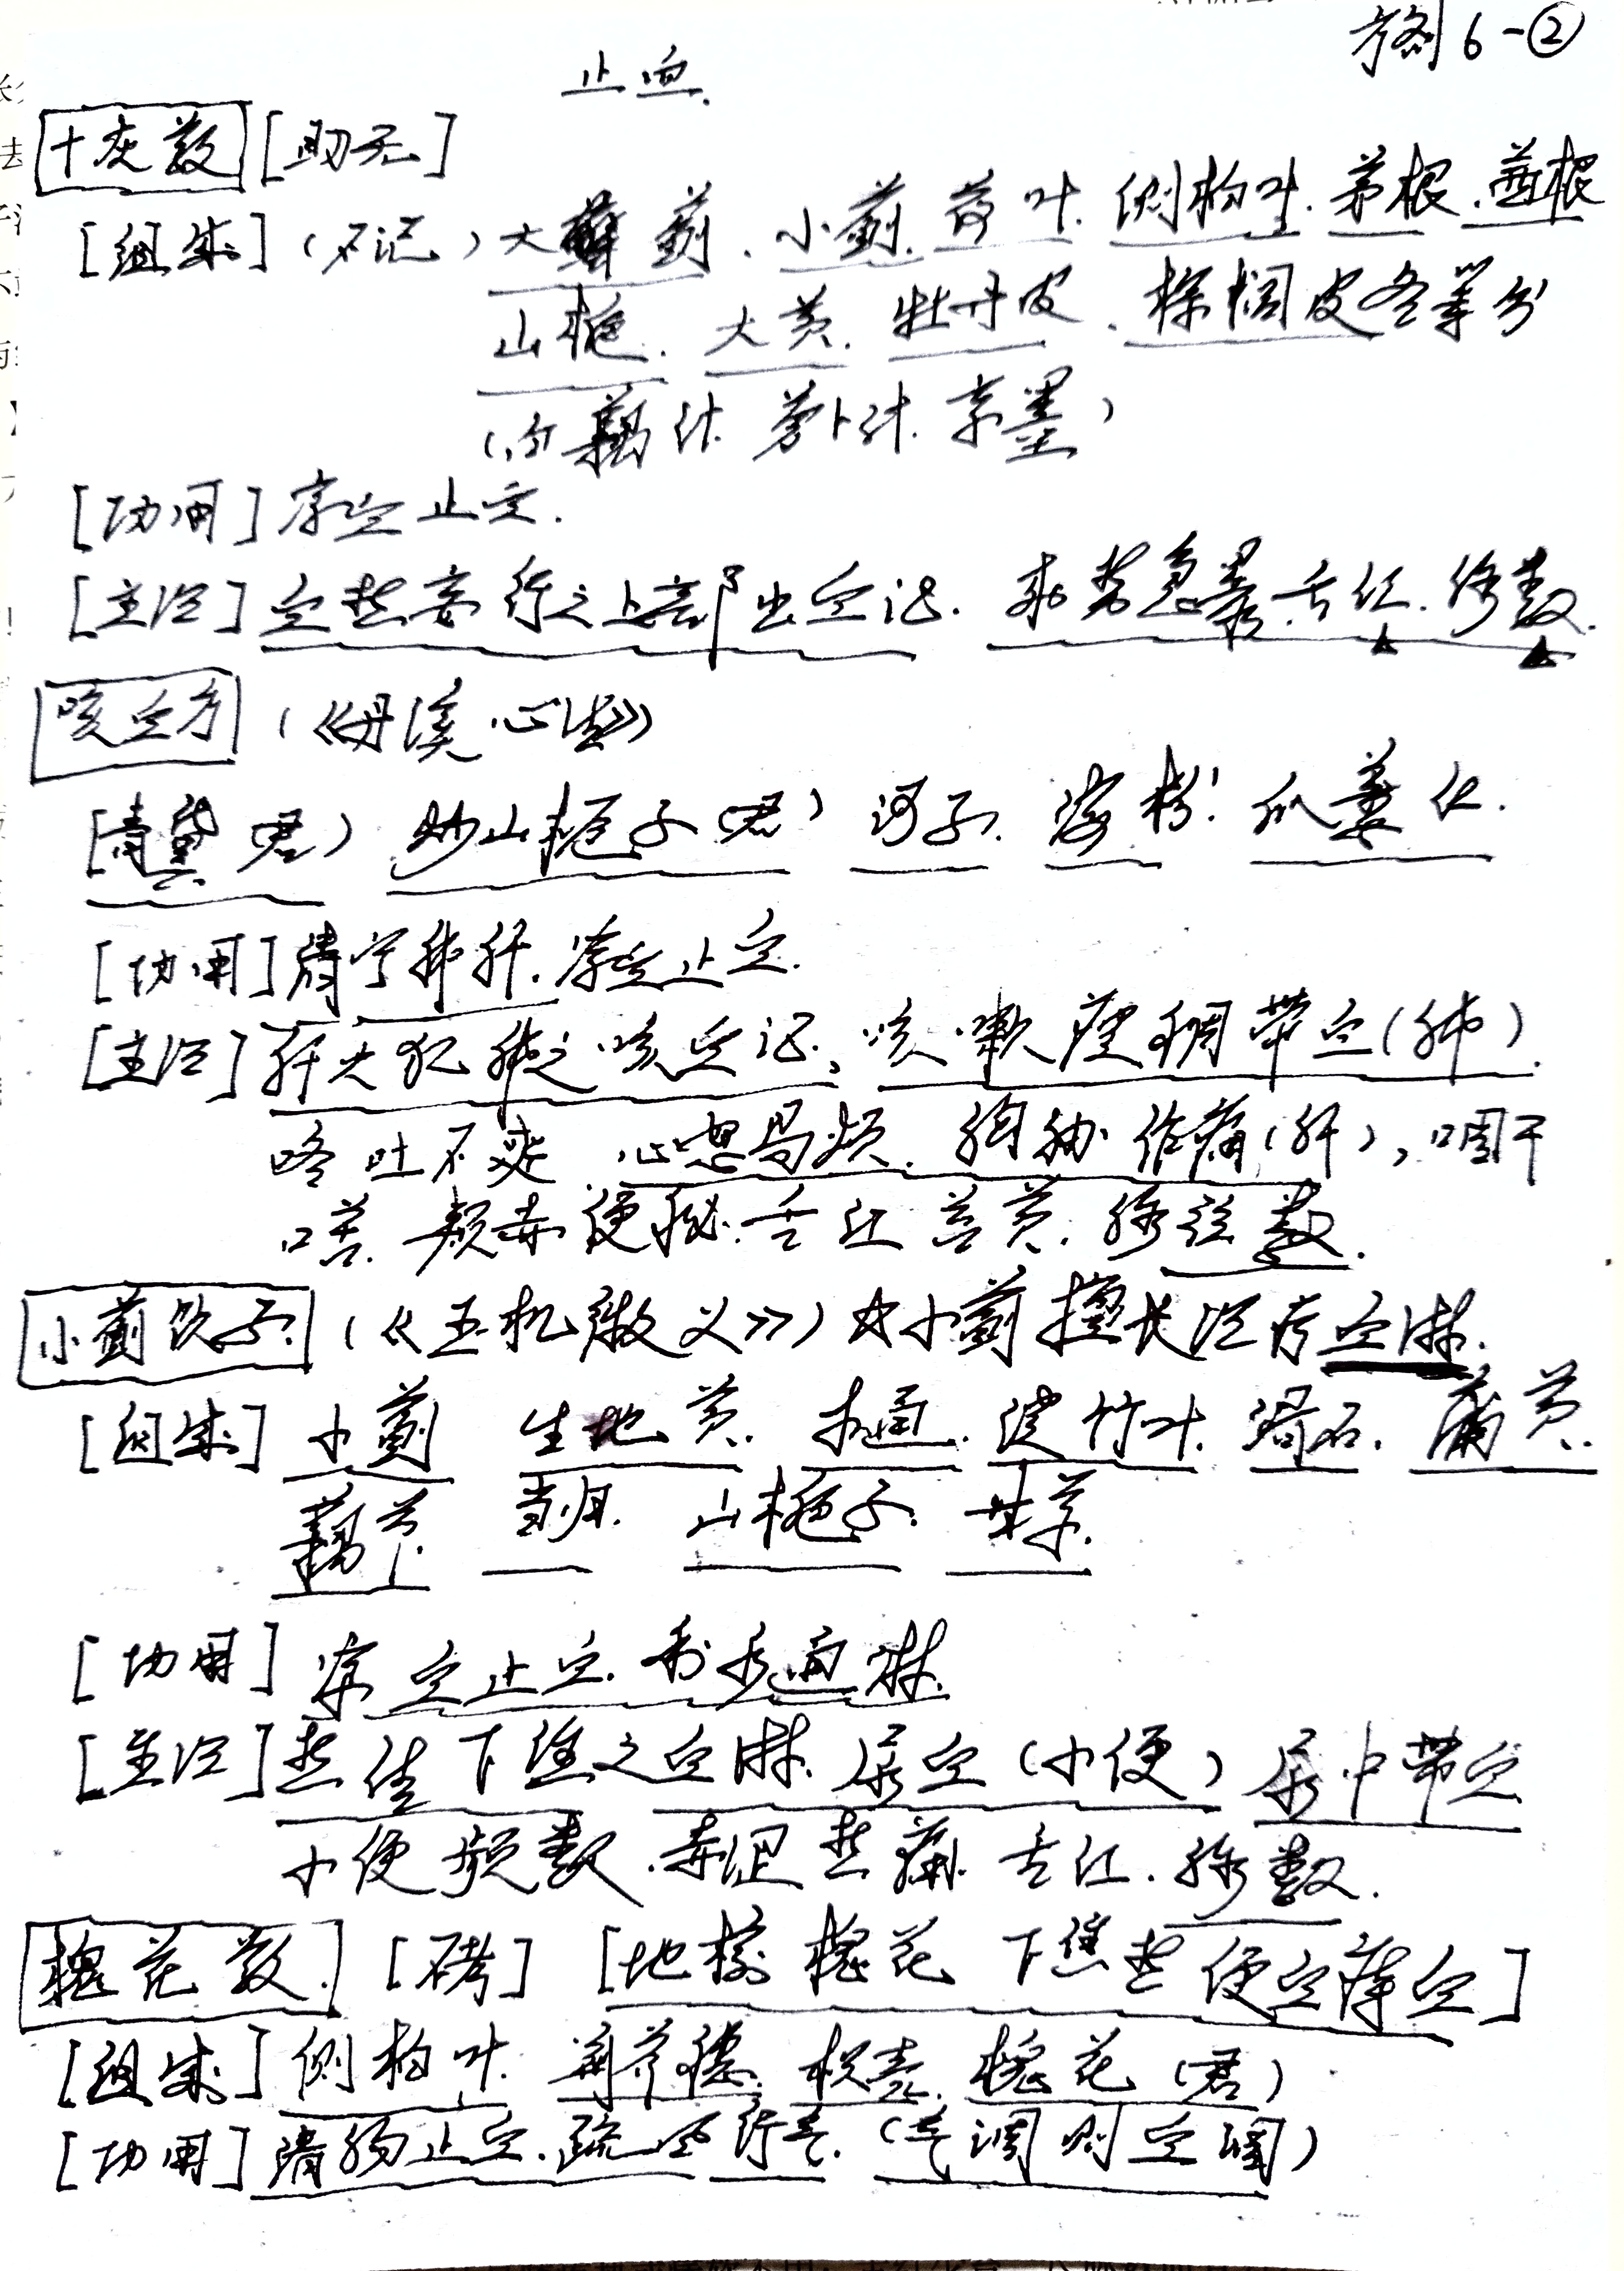 方剂6-②
止血.
十灰散 [助无]
[组成] (不记) 大蓟、小蓟、荷叶、侧柏叶、茅根、茜根
山栀、大黄、牡丹皮、棕榈皮各等分
(藕汁、萝卜汁、京墨)
[功用] 凉血止血.
[主治] 血热妄行之上部出血证. 来势急暴、舌红、脉数.
咳血方 (《丹溪心法》)
[青黛(君) 炒山栀子(君) 诃子、海粉、瓜蒌仁.
[功用] 清宁肺肝、凉血止血.
[主治] 肝火犯肺之咳血证、咳嗽痰稠带血(肺).
咯吐不爽、心烦易怒、胸胁作痛(肝), 咽干
口苦、颊赤便秘、舌红苔黄、脉弦数.
小蓟饮子 (《玉机微义》) ☆小蓟擅长治疗血淋.
[组成] 小蓟 生地黄、木通、淡竹叶、滑石、蒲黄、
藕节、当归、山栀子、甘草.
[功用] 凉血止血、利水通淋.
[主治] 热结下焦之血淋、尿血(小便) 尿中带血
小便频数、赤涩热痛、舌红、脉数.
槐花散 [不考] [地榆 槐花 下焦热 便血痔血]
[组成] 侧柏叶、荆芥穗、枳壳、槐花(君)
[功用] 清肠止血、疏风行气. (气调则血调)